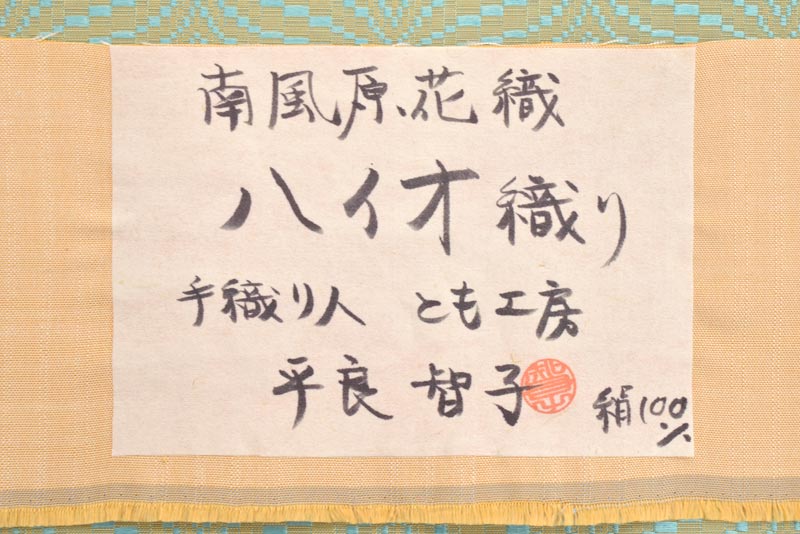 南風原花織
ハイオ織り
手織り人 とも工房
平良智子
絹100%